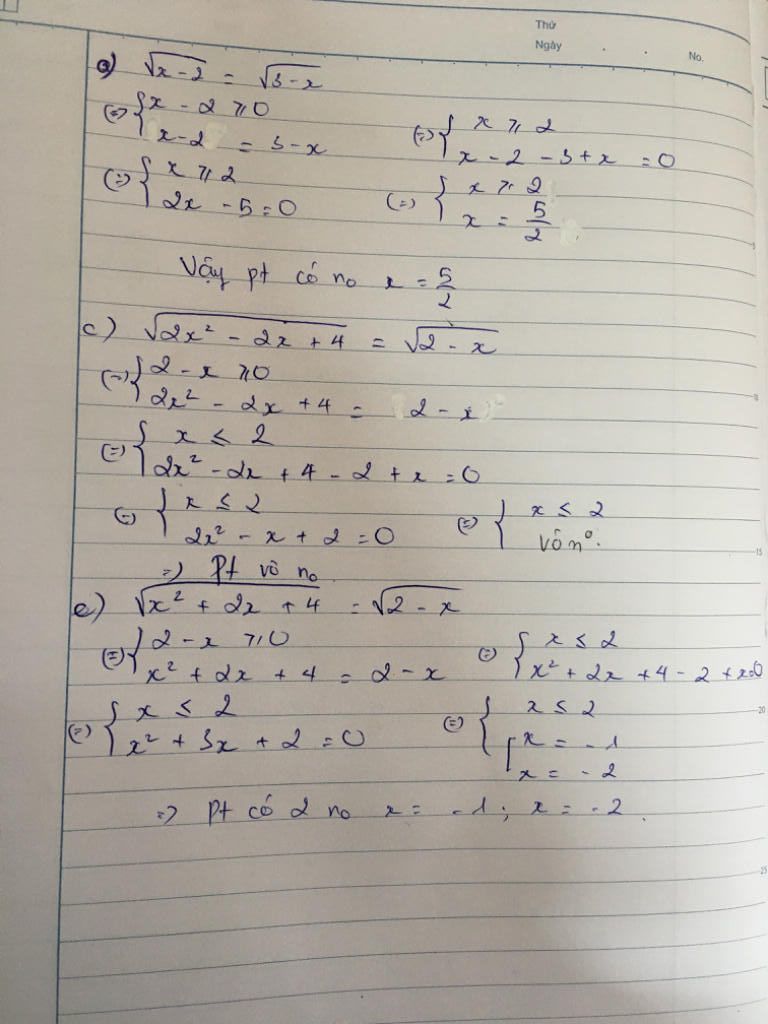 Thứ
Ngày . . No.
a) √(x-2) = √(3-x)
(=) { x - 2 ≥ 0 ; x-2 = 3-x (=) { x ≥ 2 ; x - 2 - 3 + x = 0
(=) { x ≥ 2 ; 2x - 5 = 0 (=) { x ≥ 2 ; x = 5/2
Vậy pt có no x = 5/2
c) √(2x² - 2x + 4) = √(2 - x)
(=) { 2 - x ≥ 0 ; 2x² - 2x + 4 = (2 - x)
(=) { x ≤ 2 ; 2x² - 2x + 4 - 2 + x = 0
(=) { x ≤ 2 ; 2x² - x + 2 = 0 (=) { x ≤ 2 ; vô n°.
=> Pt vô no
e) √(x² + 2x + 4) = √(2 - x)
(=) { 2 - x ≥ 0 ; x² + 2x + 4 = 2 - x (=) { x ≤ 2 ; x² + 2x + 4 - 2 + x = 0
(=) { x ≤ 2 ; x² + 3x + 2 = 0 (=) { x ≤ 2 ; [ x = -1 ; x = -2
=> Pt có 2 no x = -1 ; x = -2 .
5
10
15
20
25